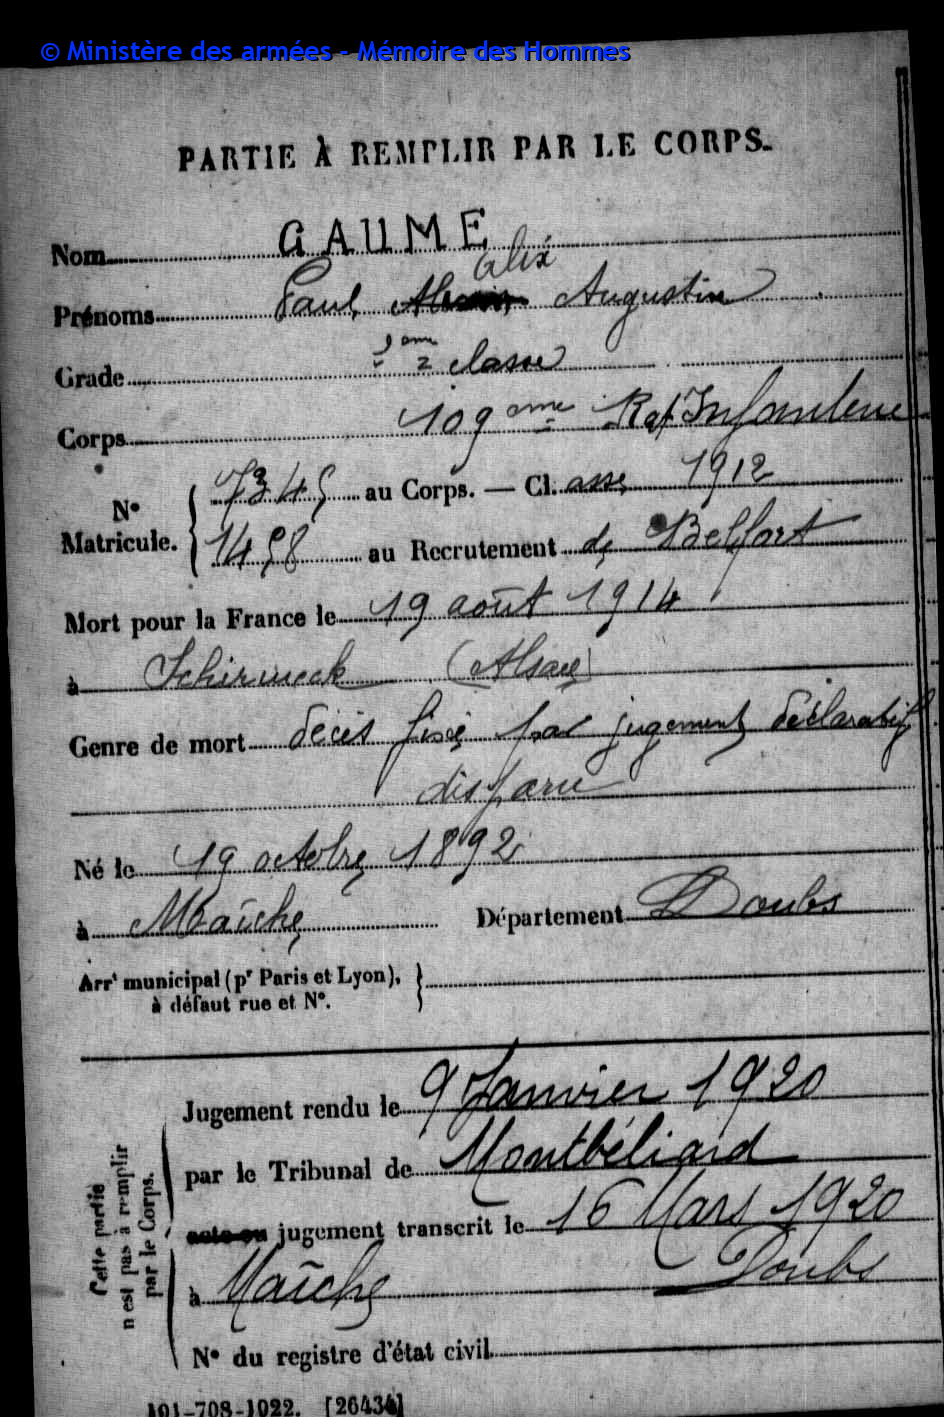 © Ministère des armées - Mémoire des Hommes
PARTIE À REMPLIR PAR LE CORPS.
Nom GAUME
Alix
Prénoms Paul, Augustin
Grade 2ème classe
Corps 109ème Rgt Infanterie
N° Matricule. { 7345 au Corps. — Cl. asse 1912
1458 au Recrutement de Belfort
Mort pour la France le 19 août 1914
à Schirmeck (Alsace)
Genre de mort décès fixé par jugement déclaratif
disparu
Né le 19 octobre 1892
à Maîche Département Doubs
Arrt municipal (pr Paris et Lyon), }
à défaut rue et N°.
Cette partie
n'est pas à remplir
par le Corps.
Jugement rendu le 9 Janvier 1920
par le Tribunal de Montbéliard
acte ou jugement transcrit le 16 Mars 1920
à Maîche Doubs
N° du registre d'état civil
101-708-1922. [26434]